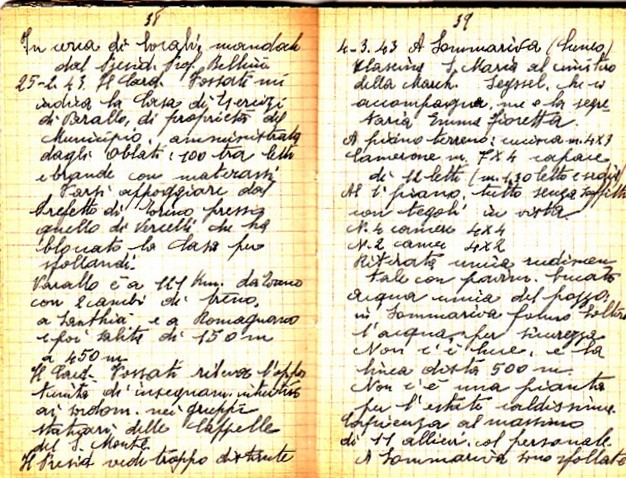 38
In cerca di locali, mandato
dal Presid. Prof. Bellini
25-2.43. Il Card. Fossati mi
indica la Casa di Esercizi
di Varallo, di proprietà del
Municipio, amministrata
dagli Oblati: 100 tra letti
e brande con materassi
Farsi appoggiare dal
Prefetto di Torino presso
quello di Vercelli, che ha
bloccato la Casa per
sfollandi.
Varallo è a 111 Km. da Torino
con 2 cambi di treno,
a Santhià e a Romagnano
e poi salita di 150 m
a 450 m
Il Card. Fossati rileva l'oppor
tunità di insegnam. intuitivo
ai sordom. nei gruppi
statuari delle Cappelle
del S. Monte
Il Presid vede troppo distante
39
4-3.43 A Sommariva (Cuneo)
Cascina S. Maria al
della March. Seyssel, che ci
accompagna, me e la segre
taria Emma Fioretta.
A piano terreno: cucina m. 4x3
Camerone m. 7x4 capace
di 12 letti (m. 1,30 letto e sedia)
Al 1° piano, tutto senza soffitto
con tegoli in vista
N. 4 camere 4x4
N. 2 camere 4x2
Ritirata unica rudimen
tale con pavim. bucato
acqua unica del pozzo,
in Sommariva
l'acqua per sicurezza
Non c'è luce, e la
linea dista 500 m.
Non c'è una pianta
per l'estate caldissima.
Capienza al massimo
di 11 allievi col personale
A Sommariva sono sfollate